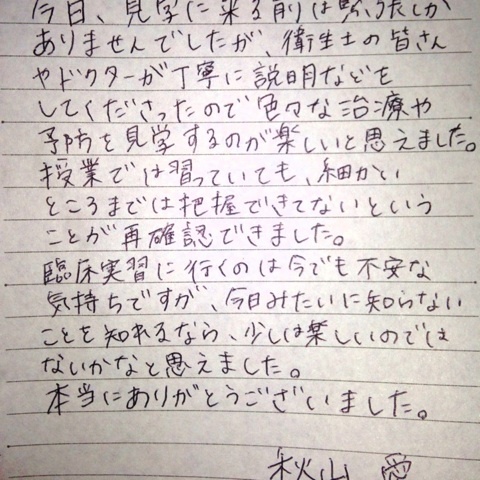 今日、見学に来る前は緊張しか
ありませんでしたが、衛生士の皆さん
やドクターが丁寧に説明などを
してくださったので色々な治療や
予防を見学するのが楽しいと思えました。
授業では習っていても、細かい
ところまでは把握できてないという
ことが再確認できました。
臨床実習に行くのは今でも不安な
気持ちですが、今日みたいに知らない
ことを知れるなら、少しは楽しいのでは
ないかなと思えました。
本当にありがとうございました。
秋山 愛